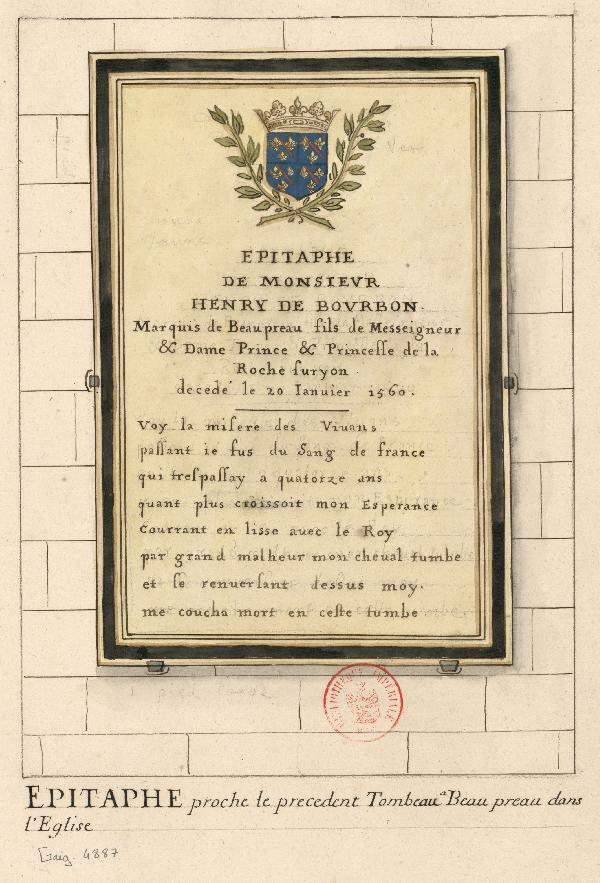 EPITAPHE
DE MONSIEVR
HENRY DE BOVRBON.
Marquis de Beaupreau fils de Messeigneur
& Dame Prince & Princeſſe de la
Roche ſuryon
decedé le 20 Ianuier 1560.
Voy la miſere des Viuans
paſſant ie fus du Sang de france
qui treſpaſſay a quatorze ans
quant plus croissoit mon Esperance
Courrant en lisse auec le Roy
par grand malheur mon cheual tumbe
et ſe renuerſant dessus moy.
me coucha mort en ceſte tumbe
BIBLIOTHEQUE IMPERIALE
EPITAPHE proche le precedent Tombeau a Beau preau dans
l'Eglise
Gaig. 4887